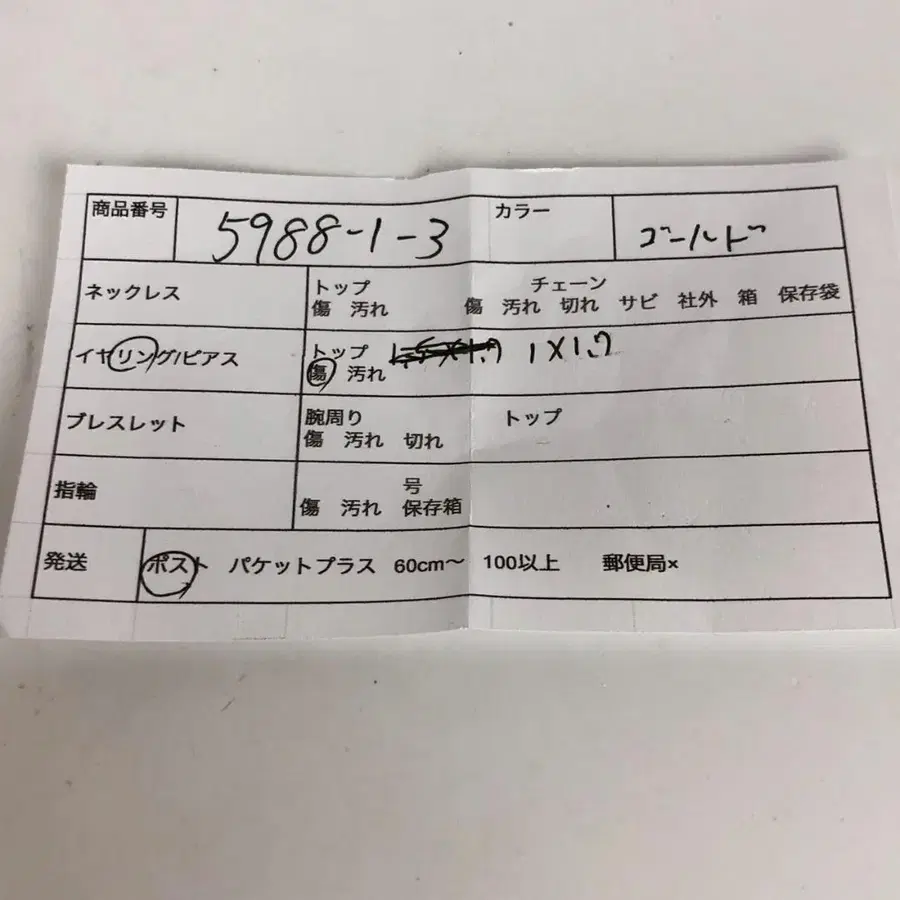 商品番号 5988-1-3 カラー ゴールド
ネックレス トップ チェーン
傷 汚れ 傷 汚れ 切れ サビ 社外 箱 保存袋
イヤリング/ピアス トップ 1.5×1.7 1×1.7
傷 汚れ
ブレスレット 腕周り トップ
傷 汚れ 切れ
指輪 号
傷 汚れ 保存箱
発送 ポスト パケットプラス 60cm〜 100以上 郵便局×